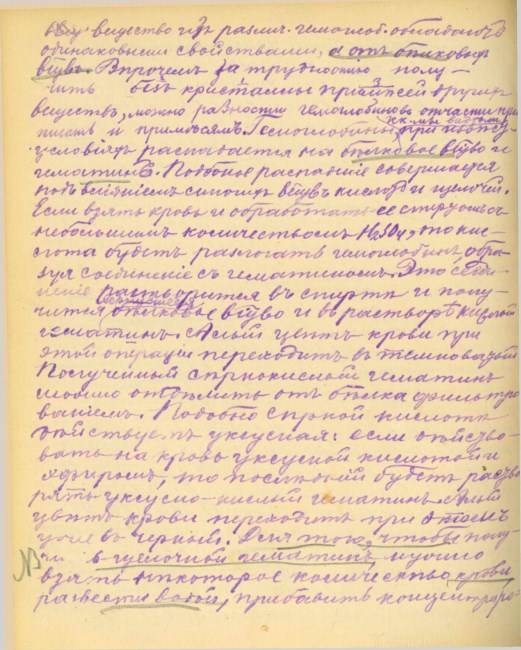 вещество изъ различ. гемоглоб. обладаютъ
одинаковыми свойствами, а отъ бѣлковыхъ
вѣщвъ. Впрочемъ за трудностью полу-
чить безъ примѣсей другихъ
веществъ, можно разности гемоглобиновъ отчасти при
писать и примѣсямъ. Гемоглобины при извѣст
условіяхъ распадается на бѣлковое вѣщво и
гематинъ. Подобное распаденіе совершается
подъ вліяніемъ сильныхъ вѣщвъ кислотъ и щелочей.
Если взять кровь и обработать ее спиртомъ съ
небольшимъ количествомъ H2SO4, то кис-
лота будетъ разлагать гемоглобинъ, обра-
зуя соединеніе съ гематиномъ. Это соеди-
неніе растворится въ спиртѣ и полу-
чится бѣлковое вѣщво и въ растворѣ кислый
гематинъ. Алый цвѣтъ крови при
этой операціи переходитъ въ темноватый
Полученный сѣрнокислый гематинъ
можно отдѣлить отъ бѣлка фильтро
ваніемъ. Подобно сѣрной кислотѣ
дѣйствуетъ уксусная: если дѣйство-
вать на кровь уксусной кислотой и
эфиромъ, то послѣдній будетъ раство
рять уксусно-кислый гематинъ. Алый
цвѣтъ крови переходитъ при этомъ
уже въ черный. Для того, чтобы полу
чи щелочной гематинъ, нужно
NB взять нѣкоторое количество крови
развести водой, прибавить концентриро-